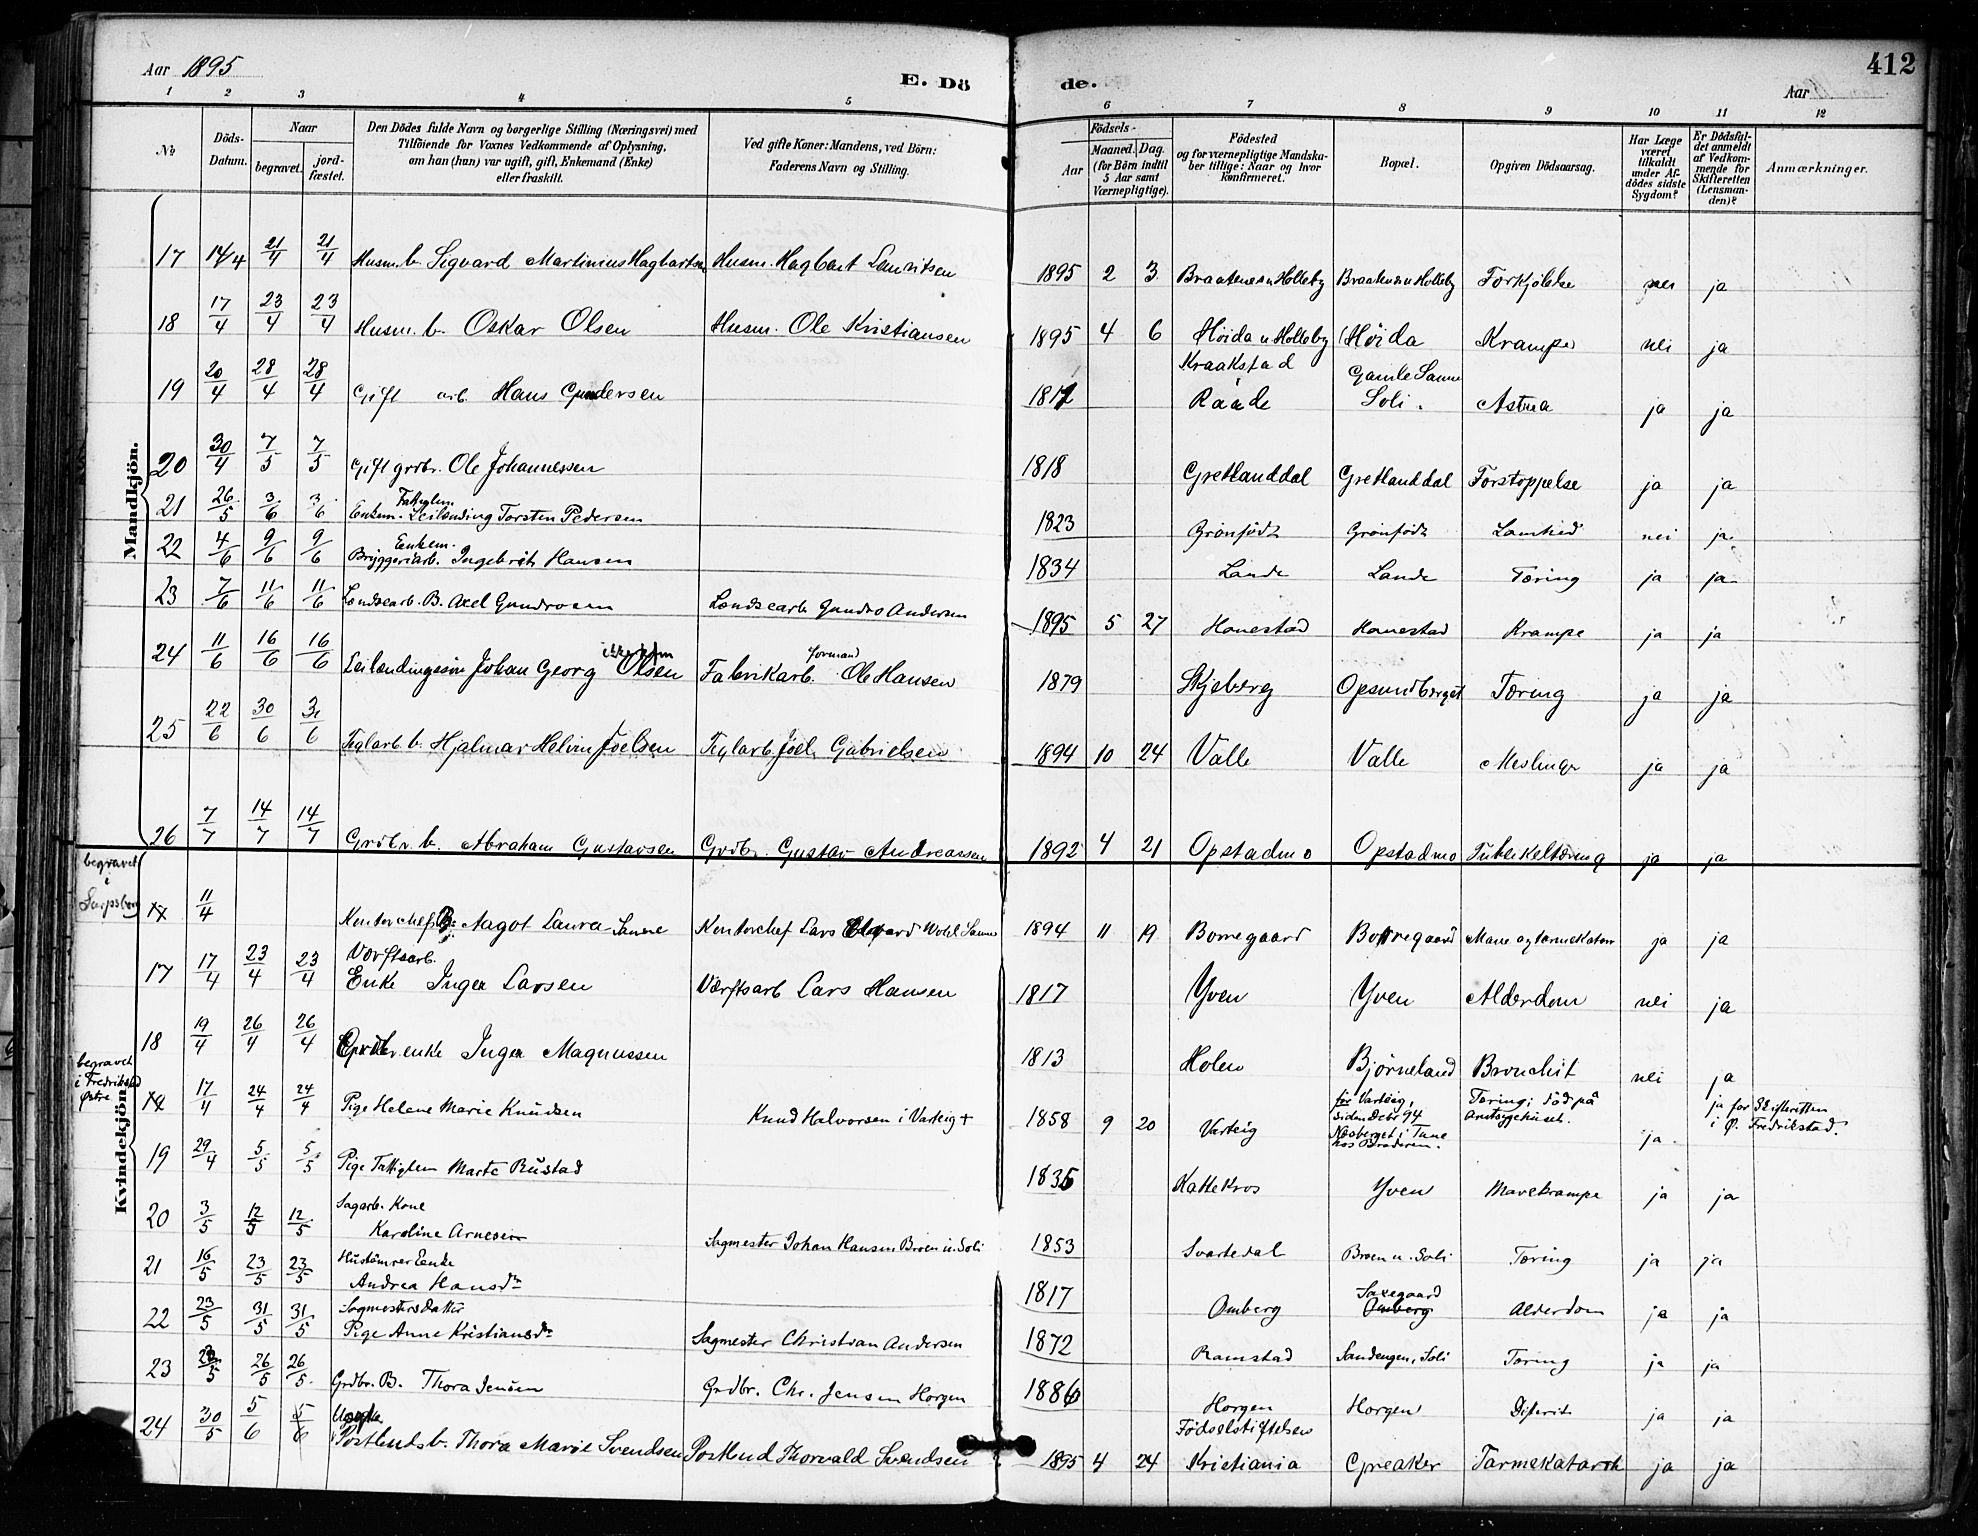 412
Aar 1895
E. Dö de.
Aar
1 2 3 4 5 6 7 8 9 10 11 12
№
Döds-Datum.
Naar
begravet.
jord-fæstet.
Den Dödes fulde Navn og borgerlige Stilling (Næringsvei) med
Tilföiende for Voxnes Vedkommende af Oplysning,
om han (hun) var ugift, gift, Enkemand (Enke)
eller fraskilt.
Ved gifte Koner: Mandens, ved Börn:
Faderens Navn og Stilling.
Födsels-
Aar
Maaned. Dag.
(for Börn indtil
5 Aar samt
Værnepligtige).
Födested
og for værnepligtige Mandska-
ber tillige: Naar og hvor
konfirmeret.
Bopæl.
Opgiven Dödsaarsag.
Har Læge
været
tilkaldt
under Af-
dödes sidste
Sygdom?
Er Dödsfal-
det anmeldt
af Vedkom-
mende for
Skifteretten
(Lensman-
den)?
Anmærkninger.
Mandkjön.
17 14/4 21/4 21/4 Husm. b. Sigvard Martinius Hagbartsen Husm. Hagbart Lauritsen 1895 2 3 Braatenen u Holleby Braatenen u Holleby Forkjølelse nei ja
18 17/4 23/4 23/4 Husm. b. Oskar Olsen Husm. Ole Kristiansen 1895 4 6 Høida u Holleby Høida Krampe nei ja
19 20/4 28/4 28/4 Gift arb. Hans Gundersen 1817 Kraakstad i Raade Gamle Sanne Soli. Astma ja ja
20 30/4 7/5 7/5 Gift grdbr. Ole Johannessen 1818 Gretlanddal Gretlanddal Forstoppelse ja ja
21 26/5 3/6 3/6 Enkem. Fattiglem. Leilænding Torsten Pedersen 1823 Grønfødt Grønfødt Lamhed nei ja
22 4/6 9/6 9/6 Enkem. Bryggeriarb. Ingebrigt Hansen 1834 Lande Lande Tæring ja ja
23 7/6 11/6 11/6 Lændsearb. B. Axel Gundrosen Lændsearb Gundro Andersen 1895 5 27 Hanestad Hanestad Krampe ja ja
24 11/6 16/6 16/6 Leilændingssøn Johan Georg Olsen Fabrikarb. formand Ole Hansen 1879 Skjeberg Opsundberget Tæring ja ja
25 22/6 30/6 3/6 Teglarb. b. Hjalmar Helvin Joelsen Teglarb. Joel Gabrielsen 1894 10 24 Valle Valle Meslinger ja ja
26 7/7 14/7 14/7 Grdbr. b. Abraham Gustavsen Grdbr. Gustav Andreassen 1892 4 21 Opstadmo Opstadmo Tuberkeltæring ja ja
Kvindekjön.
begravet
i
Sarpsborg
11/4 Kontorchef B. Aagot Laura Sanne Kontorchef Lars Edvard Wohl Sanne 1894 11 19 Borregaard Borregaard Mave og tarmekatarr ja ja
17 17/4 23/4 23/4 Værftsarb. Enke Inger Larsen Værftsarb Lars Hansen 1817 Yven Yven Alderdom nei ja
18 19/4 26/4 26/4 Grdbr. enke Inger Magnussen 1813 Holen Bjørneland Bronchit nei ja
begravet
i Fredrikstad
Østre
17/4 24/4 24/4 Pige Helene Marie Knudsen Knud Halvorsen i Varteig + 1858 9 20 Varteig før Varteig, siden Debr 94 Næsberget i Tune hos Broderen. Tæring; død på amtssygehuset. ja ja for Skifteretten i Ø. Fredrikstad.
19 29/4 5/5 5/5 Pige Fattiglem Marte Rustad 1835 Kattekros Yven Mavekrampe ja ja
20 3/5 12/5 12/5 Sagarb. Kone Karoline Arnesen Sagmester Johan Hansen Broen u. Soli 1853 Svartedal Broen u. Soli Tæring ja ja
21 16/5 23/5 23/5 Hustømrer Enke Andrea Hansdtr 1817 Omberg Saxegaard Omberg Alderdom ja ja
22 23/5 31/5 31/5 Sagmesters datter Pige Anne Kristiansdtr Sagmester Christian Andersen 1872 Ramstad Sandengen, Soli Tæring ja ja
23 26/5 26/5 Grdbr. B. Thora Jensen Grdbr. Chr. Jensen Horgen 1886 Horgen Horgen Difterit ja ja
24 30/5 5/6 5/6 Uægte Postbuds b. Thora Marie Svendsen Postbud Thorvald Svendsen 1895 4 24 Fødselsstiftelsen Kristiania Greaker Tarmekatarrh ja ja